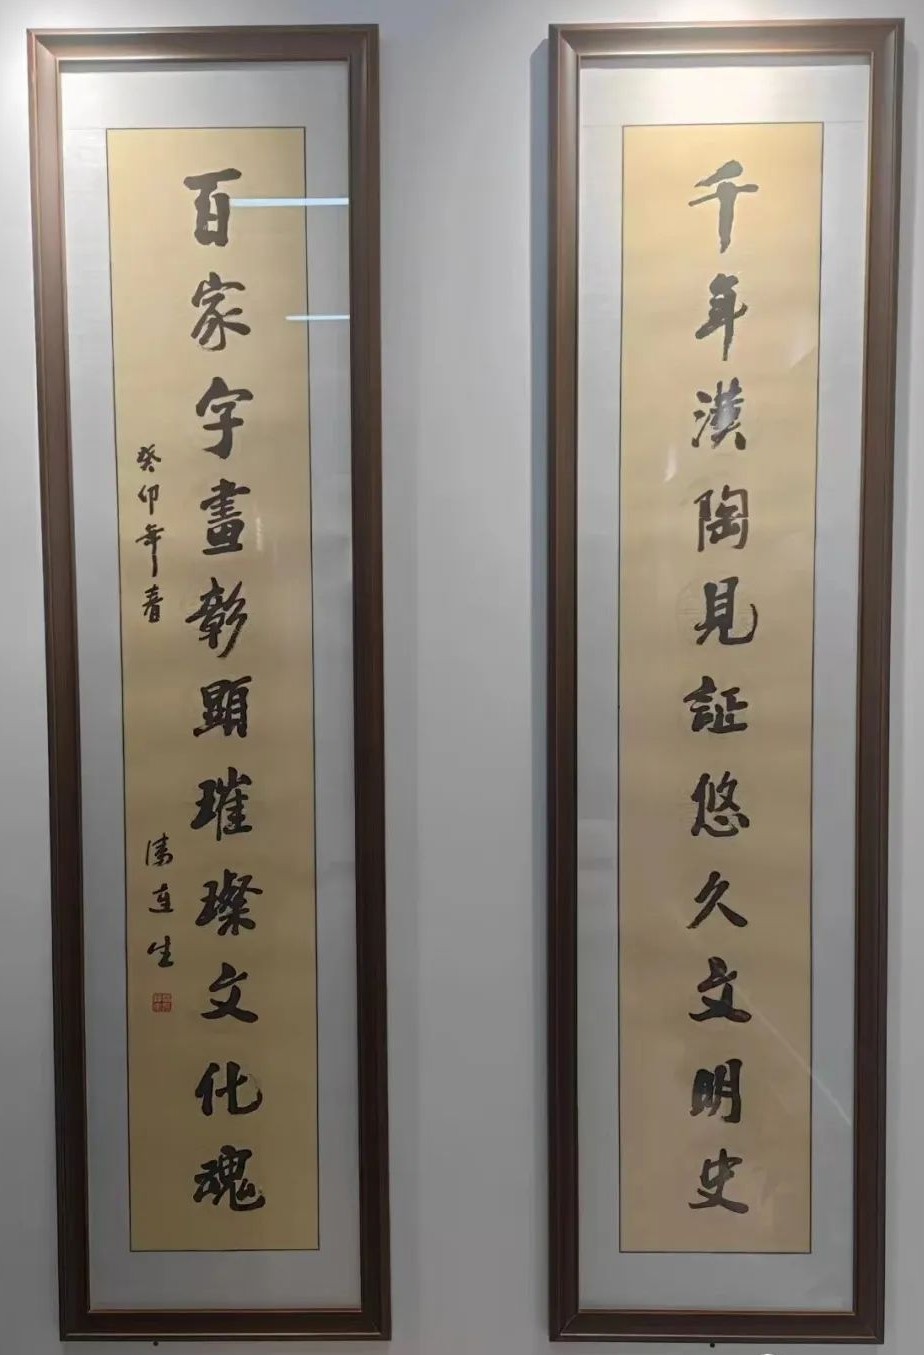 千年漢陶見証悠久文明史
百家字畫彰顯璀璨文化魂
癸卯年春
連生